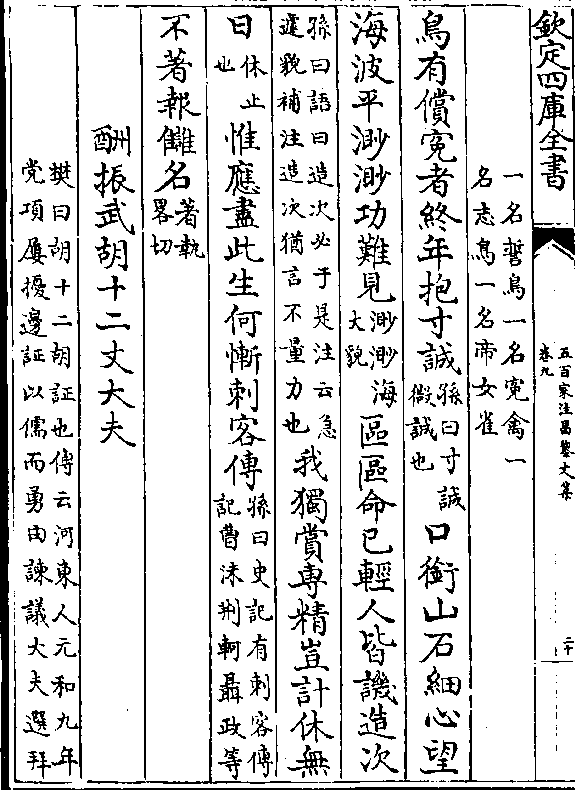 欽定四庫全書
五百家注昌黎文集
卷九
二十
一名誓鳥一名寃禽一
名志鳥一名帝女雀
鳥有償寃者終年抱寸誠孫曰寸誠㣲誠也口銜山石細心望
海波平渺渺功難見渺渺海大貌區區命已輕人皆譏造次
孫曰語曰造次必于是注云急遽貌補注造次猶言不量力也我獨賞專精豈計休無
日休止也惟應盡此生何慚刺客傳孫曰史記有刺客傳記曹沫荆軻聶政等
不著報讎名著執畧切
酬振武胡十二丈大夫
樊曰胡十二胡証也傳云河東人元和九年
党項屢擾邊証以儒而勇由諫議大夫選拜